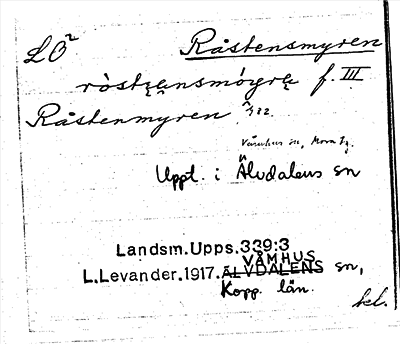 LÖ² Råstensmyren
röstensmögre f. III
Råstenmyren 432.
Våmhus sn, Mora tg.
Uppt. i Älvdalens sn
Landsm.Upps.339:3
VÅMHUS
L.Levander.1917.ÄLVDALENS sn,
Kopp. län.
kl.